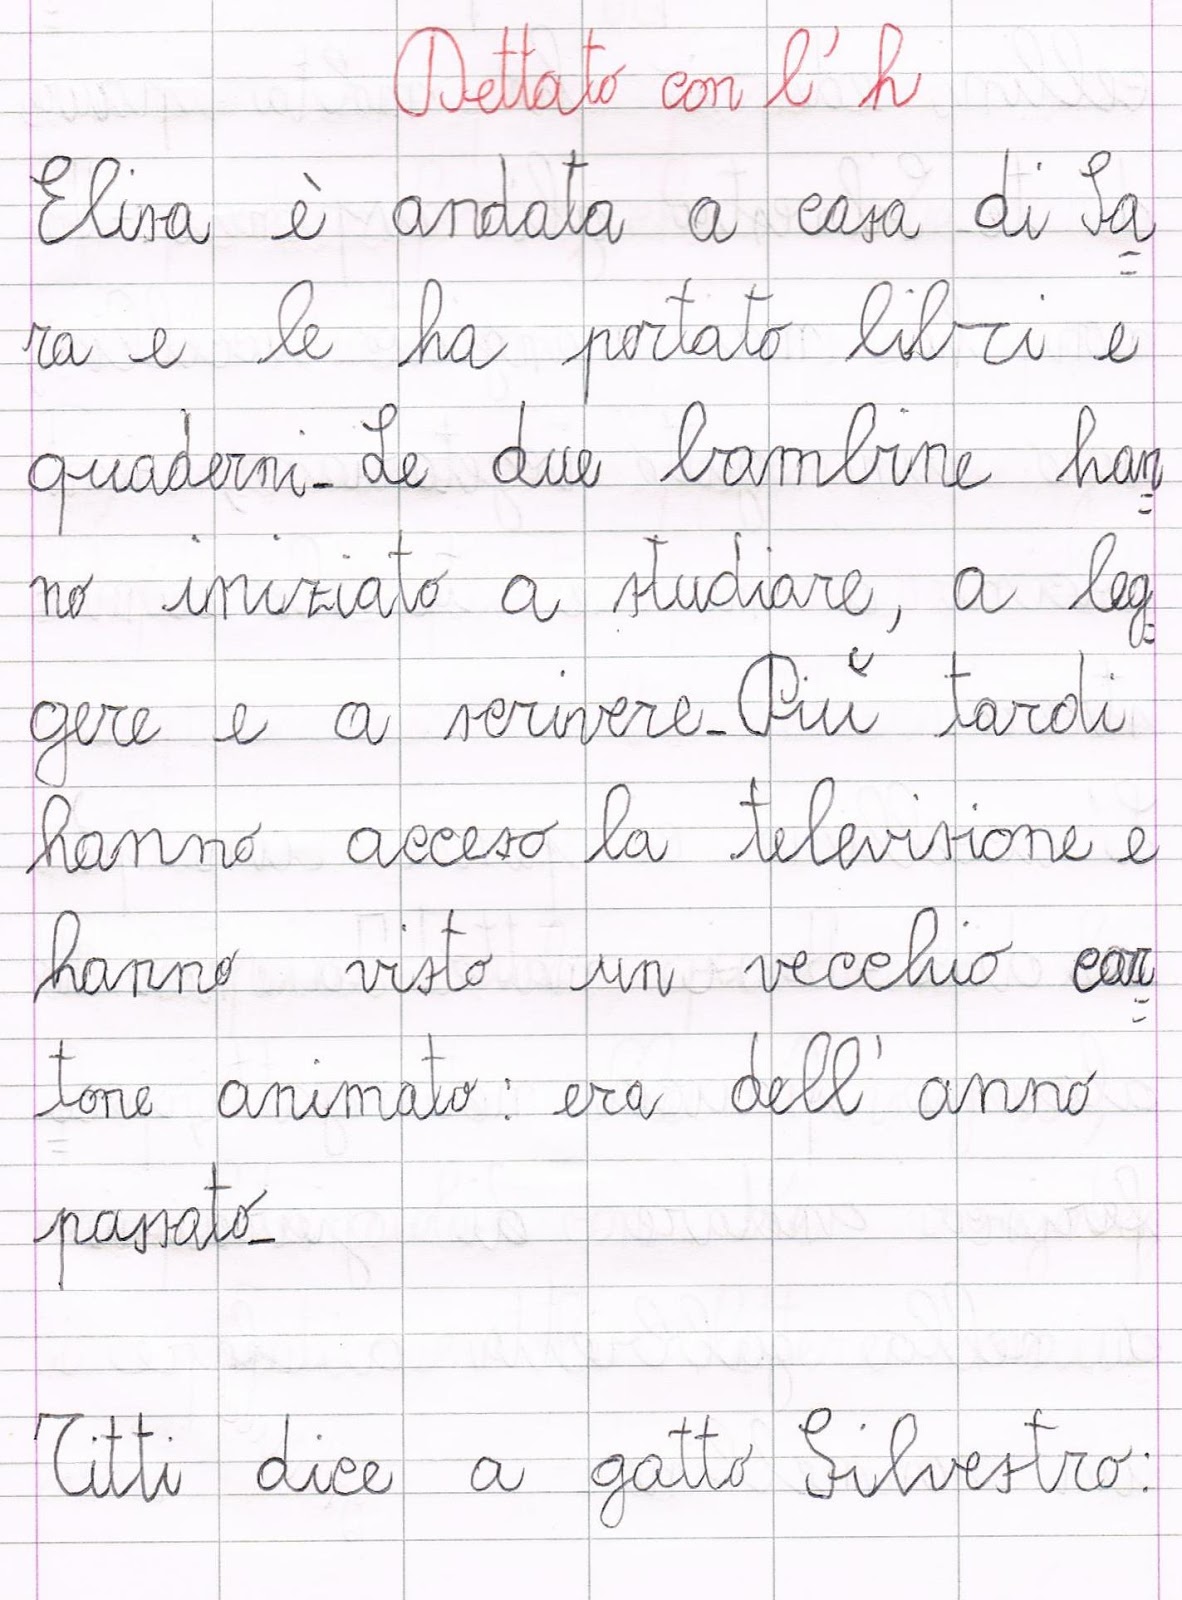 Dettato con l'h
Elisa è andata a casa di Sa=
ra e le ha portato libri e
quaderni. Le due bambine han=
no iniziato a studiare, a leg=
gere e a scrivere. Più tardi
hanno acceso la televisione e
hanno visto un vecchio car=
tone animato: era dell'anno
passato.
Titti dice a gatto Silvestro: